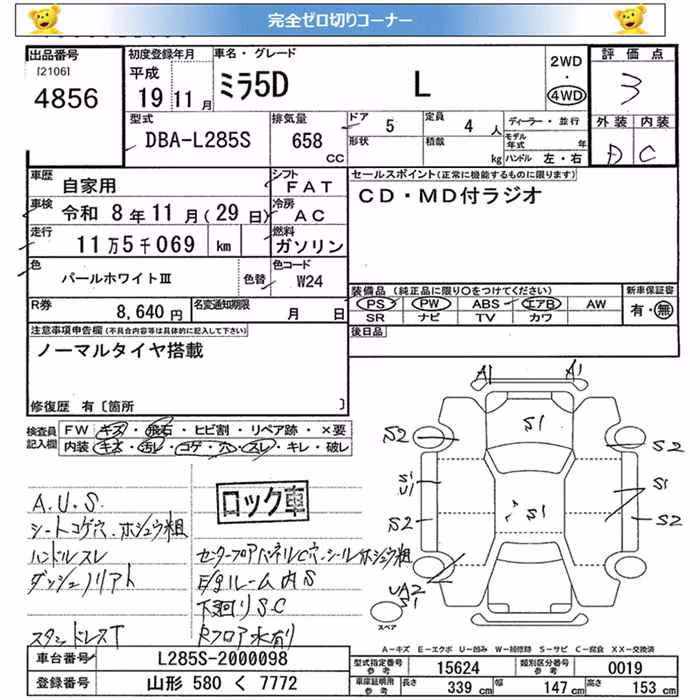 完全ゼロ切りコーナー
出品番号
[2106]
4856
初度登録年月
平成
19年 11月
車名・グレード
ミラ5D L
2WD
・
4WD
評価点
3
外装 内装
D C
型式
DBA-L285S
排気量
658 CC
ドア 5
定員 4人
形状
積載 kg
ディーラー・並行
モデル年式 年
ハンドル 左・右
車歴 自家用
シフト FAT
車検 令和 8年 11月 (29日)
冷房 AC
走行 11万5千069 km
燃料 ガソリン
色 パールホワイトⅢ
色替
色コード W24
R券 8,640円
名変通知期限 月 日
セールスポイント(正常に機能するものに限ります)
CD・MD付ラジオ
装備品 (純正品に限り○をつけてください)
PS PW ABS エアB AW
SR ナビ TV カワ
新車保証書
有・無
後日品
注意事項申告欄(不具合内容等は具体的に記入して下さい)
ノーマルタイヤ搭載
修復歴 有〔箇所 〕
検査員記入欄
FW キズ・飛石・ヒビ割・リペア跡・×要
内装 キズ・汚レ・コゲ・穴・スレ・キレ・破レ
A.U.S.
シートコゲ穴、ホシュウ粗
ハンドルスレ
ダッシュノリアト
スタンドレスT
ロック車
センターフロアパネルC穴、シールホシュウ粗
E/gルーム内S
下廻りSC
Rフロア水有り
A1 A1
S1
S2 S2
S1
U1
S1
S1
S2 S2
UA2
S1
スペア
A-キズ E-エクボ U-凹み W-補修跡 S-サビ C-腐食 XX-交換済
車台番号 L285S-2000098
登録番号 山形 580 く 7772
型式指定番号 参考 15624
類別区分番号 参考 0019
車庫証明用 参考
長さ 339 cm 幅 147 cm 高さ 153 cm